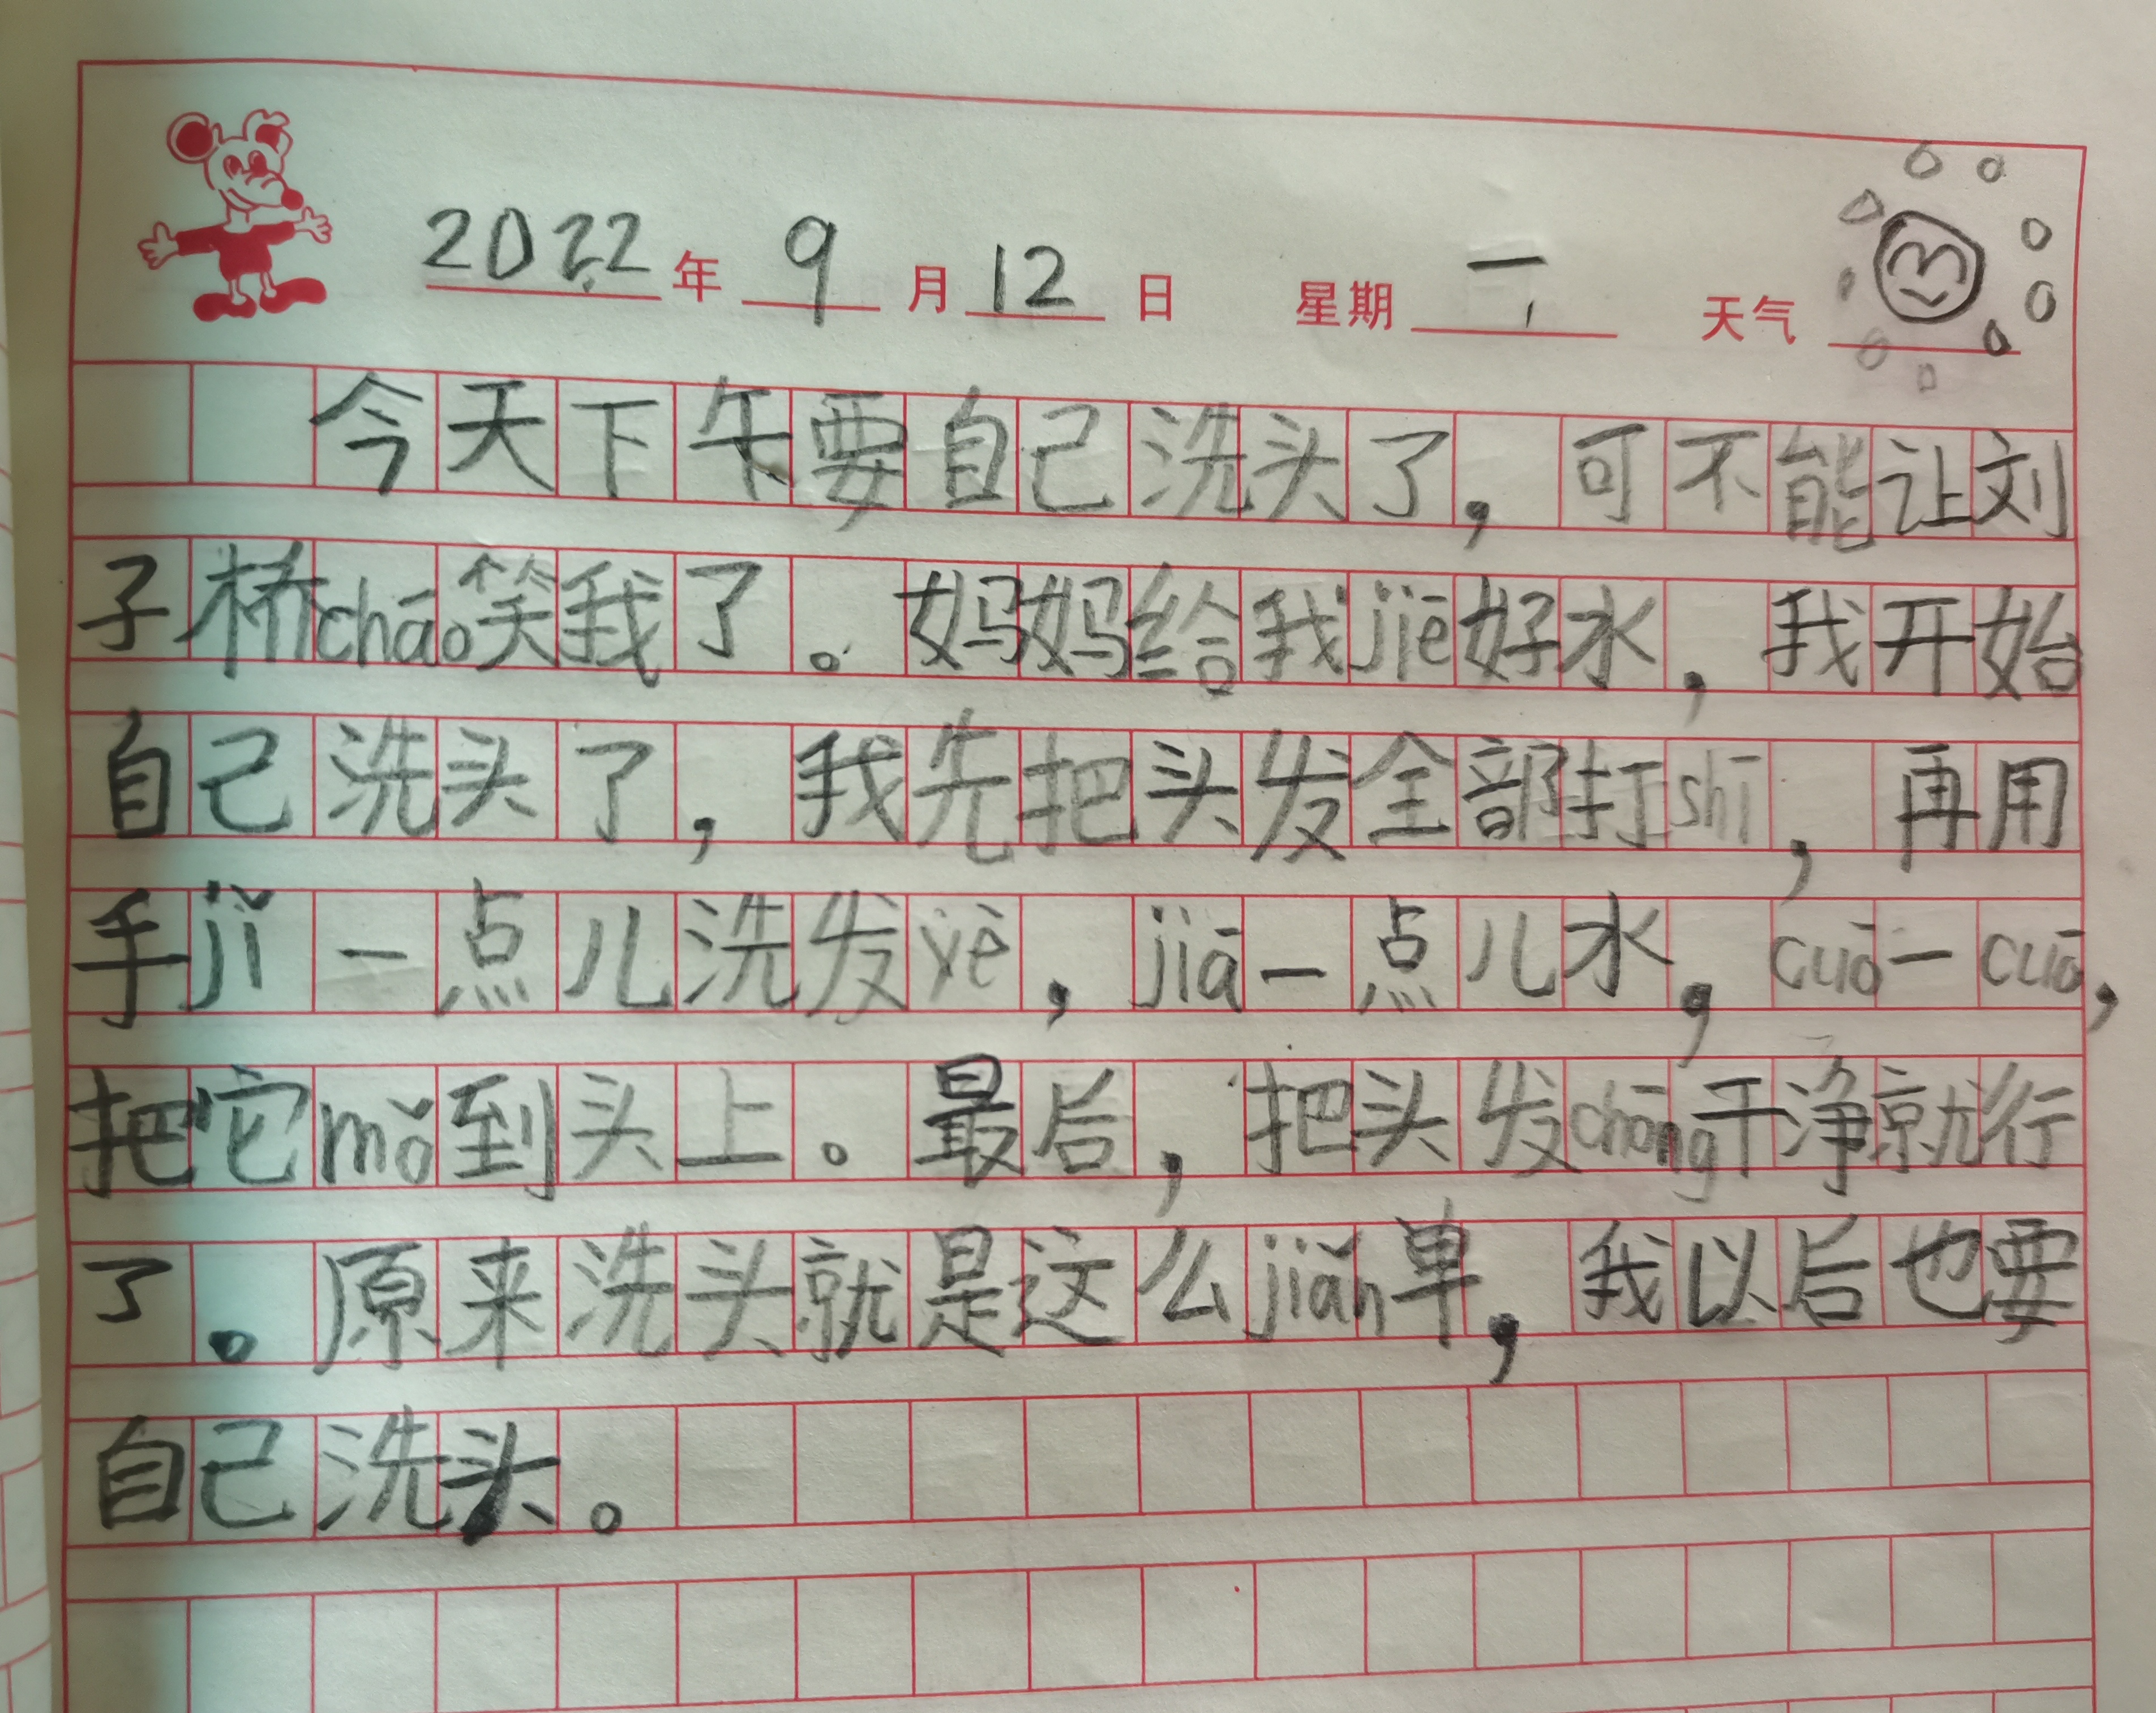 2022年9月12日 星期一 天气
今天下午要自己洗头了，可不能让刘
子桥cháo笑我了。妈妈给我jiē好水，我开始
自己洗头了，我先把头发全部打shī，再用
手jǐ一点儿洗发yè，jiā一点儿水，cuō一cuō，
把它mǒ到头上。最后，把头发chōng干净就行
了。原来洗头就是这么jiǎn单，我以后也要
自己洗头。